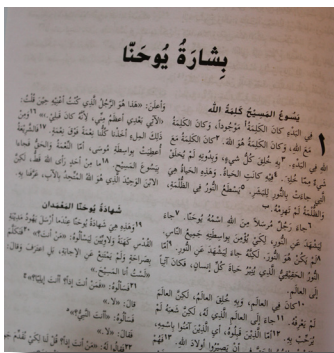 بِشارَةُ يُوحَنّا
يَسُوعُ المَسِيحُ كَلِمَةُ الله
١ في البَدْءِ كانَ الكَلِمَةُ مَوْجُوداً، وَكانَ الكَلِمَةُ
مَعَ اللهِ، وَكانَ الكَلِمَةُ هُوَ اللهُ. ٢كانَ الكَلِمَةُ مَعَ
اللهِ في البَدْءِ. ٣بِهِ خُلِقَ كُلُّ شَيءٍ، وَبِدُونِهِ لَمْ يُخلَقْ
شَيءٌ مِمّا خُلِقَ. ٤فيهِ كانَتِ الحَياةُ، وَهَذِهِ الحَياةُ هِيَ
الَّتِي جاءَتْ بِالنُّورِ لِلبَشَرِ. ٥يَسطَعُ النُّورُ في الظُّلمَةِ،
وَالظُّلمَةُ لَمْ تَهزِمْهُ.
٦جاءَ رَجُلٌ مُرسَلاً مِنَ اللهِ اسْمُهُ يُوحَنّا. ٧جاءَ
لِيَشهَدَ عَنِ النُّورِ، لِكَيْ يُؤمِنَ بِواسِطَتِهِ جَمِيعُ النّاسِ.
٨لَمْ يَكُنْ هُوَ النُّورَ، لَكِنَّهُ جاءَ لِيَشهَدَ عَنِ النُّورِ. ٩أمّا
النُّورُ الحَقِيقِيُّ الَّذِي يُنِيرُ حَياةَ كُلِّ إنسانٍ، فَكانَ آتِياً
إلَى العالَمِ.
١٠كانَ في العالَمِ، وَبِهِ خُلِقَ العالَمُ، لَكِنَّ العالَمَ
لَمْ يَعرِفْهُ. ١١جاءَ إلَى العالَمِ الَّذِي لَهُ، لَكِنَّ شَعبَهُ لَمْ
يُرَحِّبْ بِهِ. ١٢أمّا الَّذِينَ قَبِلُوهُ، أيِ الَّذِينَ آمَنُوا بِاسْمِهِ،
أنْ يَصِيرُوا أولادَ اللهِ.
وَأعلَنَ: «هَذا هُوَ الرَّجُلُ الَّذِي كُنْتُ أعْنِيهِ حِينَ قُلْتُ:
‹الآتِي بَعدِي أعظَمُ مِنِّي، لِأنَّهُ كانَ قَبلِي.›» ١٦وَمِنْ
ذَلِكَ المِلءِ أخَذْنا كُلُّنا نِعْمَةً فَوقَ نِعْمَةٍ. ١٧فَالشَّرِيعَةُ
أُعطِيَتْ بِواسِطَةِ مُوسَى، أمّا النِّعْمَةُ وَالحَقُّ فَجاءا
بِيَسُوعَ المَسِيحِ. ١٨ما مِنْ أحَدٍ رَأى اللهَ قَطُّ، لَكِنَّ
الابْنَ الوَحِيدَ الَّذِي هُوَ اللهُ المُتَّحِدُ بِالآبِ، عَرَّفَنا بِهِ.
شَهادَةُ يُوحَنّا المَعْمَدان
١٩وَهَذِهِ هِيَ شَهادَةُ يُوحَنّا عِندَما أرسَلَ يَهُودُ مَدِينَةِ
القُدْسِ كَهَنَةً وَلاوِيِّينَ لِيَسألُوهُ: «مَنْ أنتَ؟» ٢٠فَتَكَلَّمَ
بِصَراحَةٍ وَلَمْ يَمتَنِعْ عَنِ الإجابَةِ، بَلِ اعتَرَفَ وَقالَ:
«لَستُ أنا المَسِيحَ.»
٢١فَسَألُوهُ: «فَمَنْ أنتَ إذاً؟ أأنتَ إيلِيّا؟»
فَقالَ: «لا.»
فَسَألُوهُ: «أأنتَ النَّبِيُّ؟»
فَقالَ: «لا.»
٢٢فَقالُوا لَهُ: «فَمَنْ أنتَ إذاً؟ قُلْ لَنا لِكَيْ نُقَدِّمَ